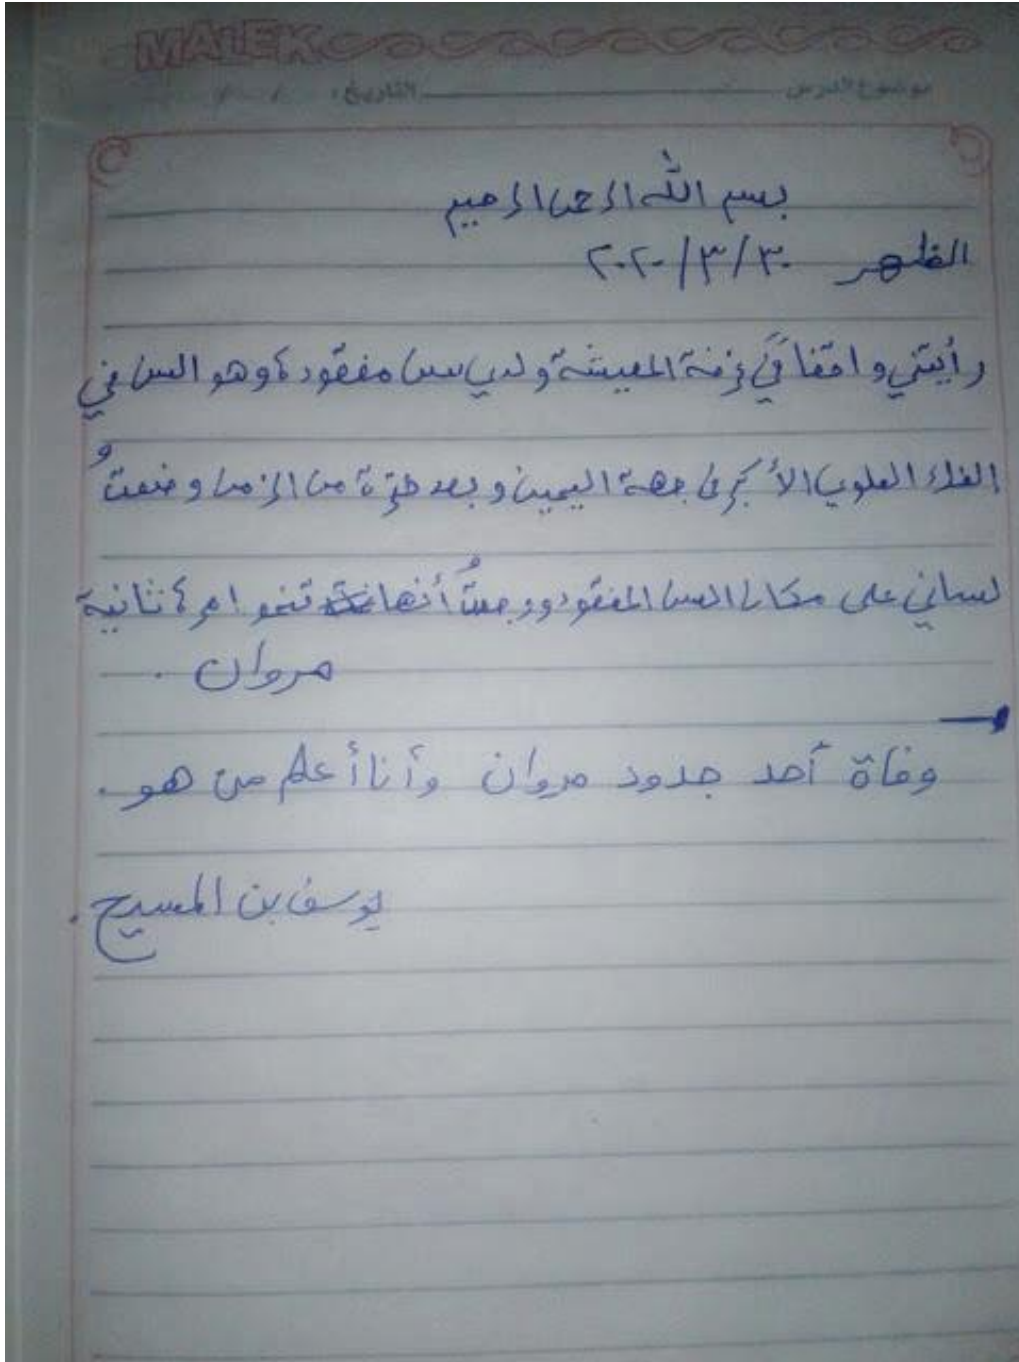 MALEK
موضوع الدرس التاريخ: / /
بسم الله الرحمن الرحيم
الظهر ٢٠٢٠/٣/٣٠
رأيتني واقفاً في غرفة المعيشة ولدي سن مفقودة وهو السن في
الفك العلوي الأ من جهة اليمين وبعد فترة من الزمن وضعتُ
لساني على مكان السن المفقود ووجدتُ أنها تنمو مرة ثانية
مروان .
وفاة أحد جدود مروان وأنا أعلم من هو .
يوسف بن المسيح .